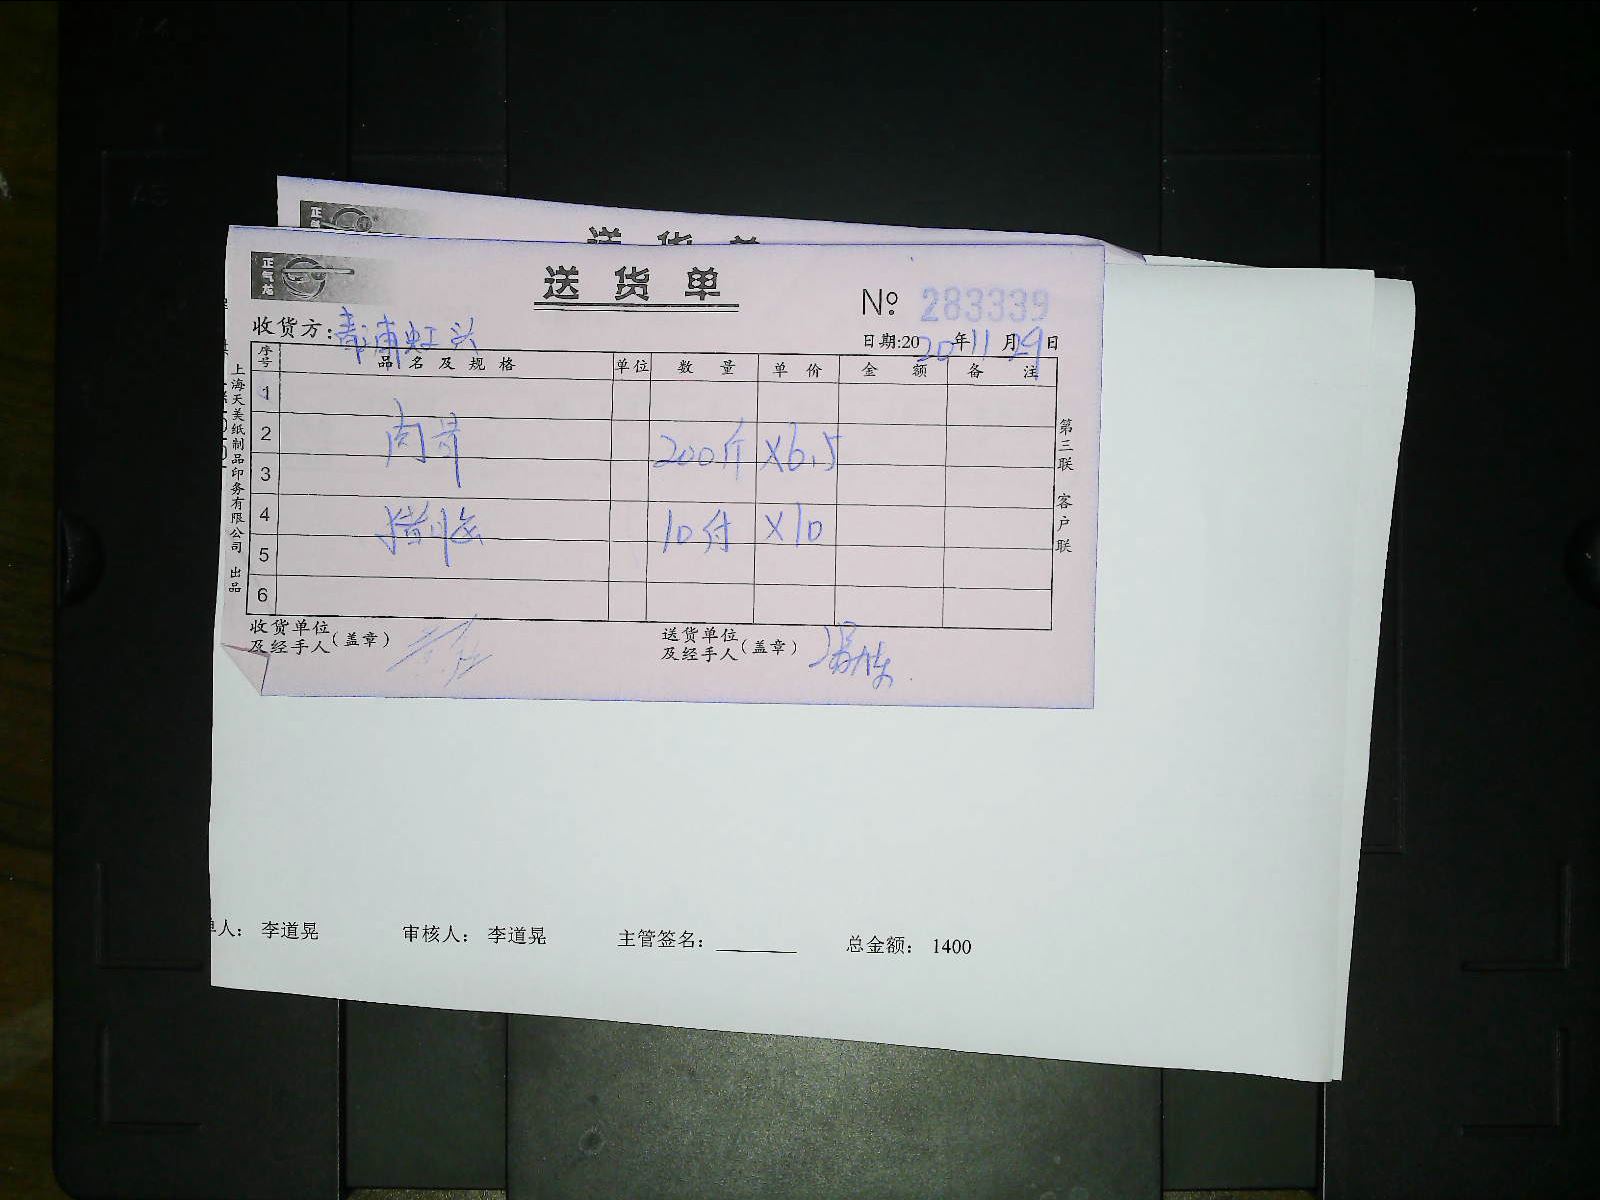 正
送 货 单
正气龙
送 货 单
№ 283339
收货方: 青浦虹
日期:2020年11月29日
序号 品名及规格 单位 数量 单价 金额 备注
1
2
肉骨 200斤 X6.5
3
4
10付 X10
5
6
上海天美纸制品印务有限公司 出品
第三联 客户联
收货单位及经手人(盖章)
送货单位及经手人(盖章)
单人: 李道晃 审核人: 李道晃 主管签名: 总金额: 1400